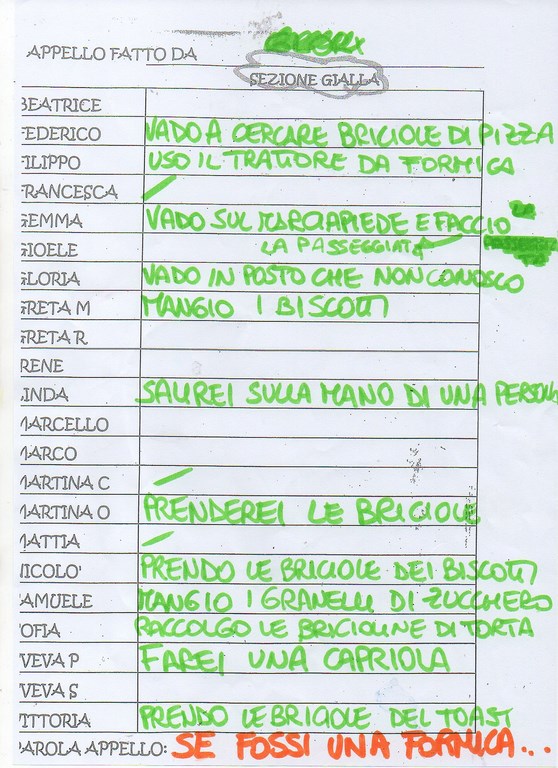 APPELLO FATTO DA
SEZIONE GIALLA
BEATRICE
FEDERICO VADO A CERCARE BRICIOLE DI PIZZA
FILIPPO USO IL TRATTORE DA FORMICA
FRANCESCA
GEMMA VADO SUL MARCIAPIEDE E FACCIO
GIOELE LA PASSEGGIATA
GLORIA VADO IN POSTO CHE NON CONOSCO
GRETA M MANGIO I BISCOTTI
GRETA R
IRENE
LINDA SALIREI SULLA MANO DI UNA PERSONA
MARCELLO
MARCO
MARTINA C
MARTINA O PRENDEREI LE BRICIOLE
MATTIA
NICOLO' PRENDO LE BRICIOLE DEI BISCOTTI
SAMUELE MANGIO I GRANELLI DI ZUCCHERO
SOFIA RACCOLGO LE BRICIOLINE DI TORTA
VEVA P FAREI UNA CAPRIOLA
VEVA S
VITTORIA PRENDO LE BRICIOLE DEL TOAST
PAROLA APPELLO: SE FOSSI UNA FORMICA...